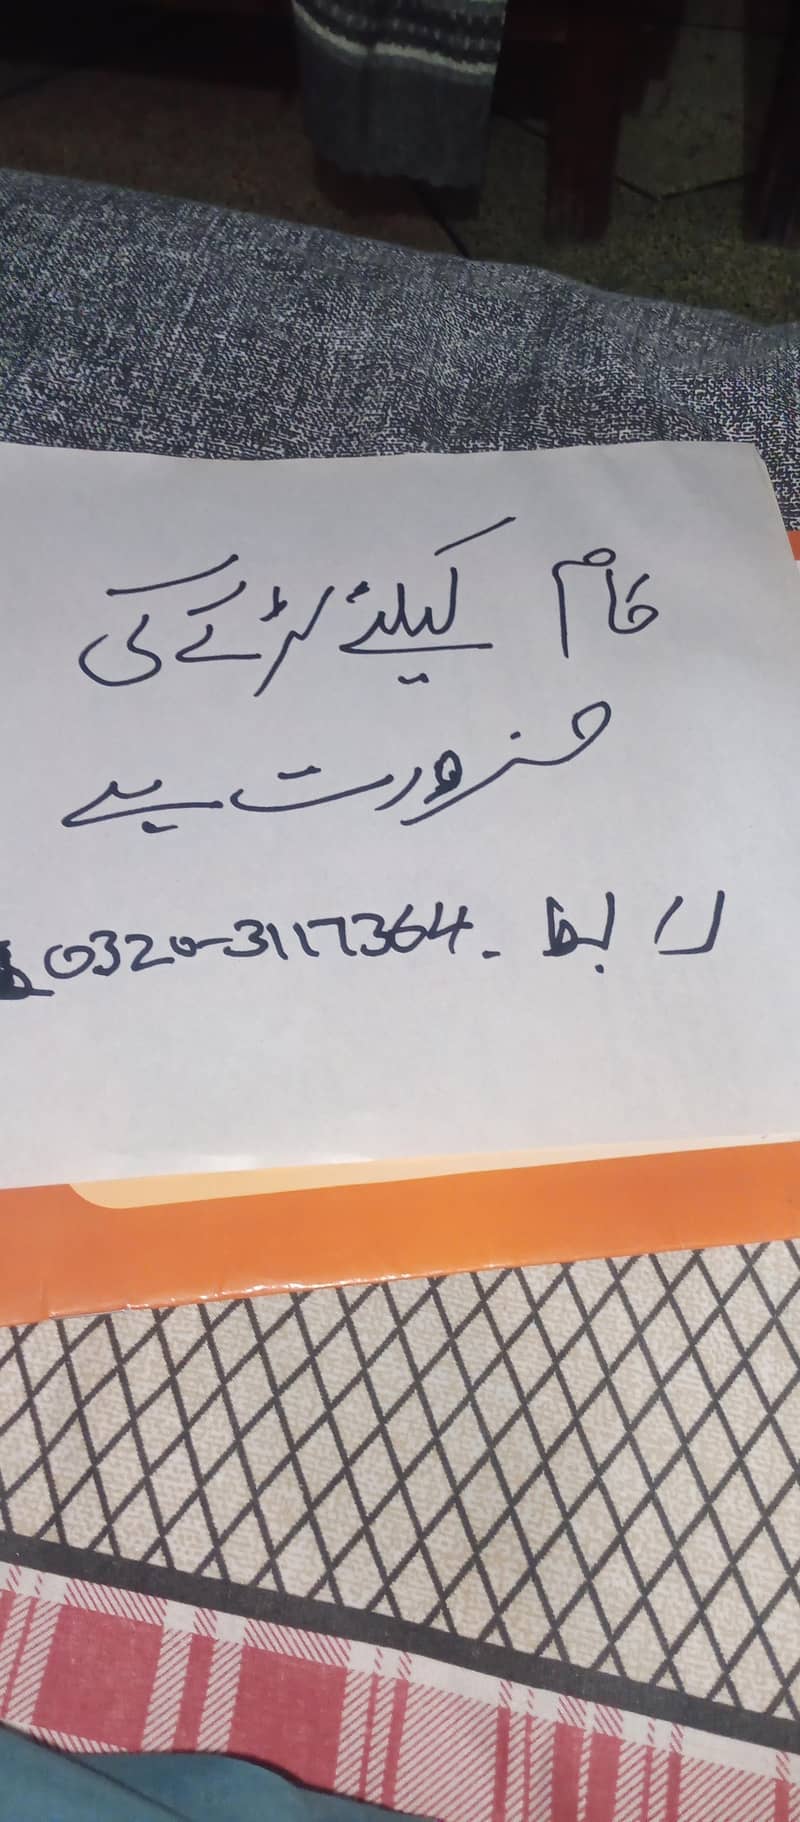 کام کیلئے لڑکے کی
ضرورت ہے
رابطہ - 0320-3117364